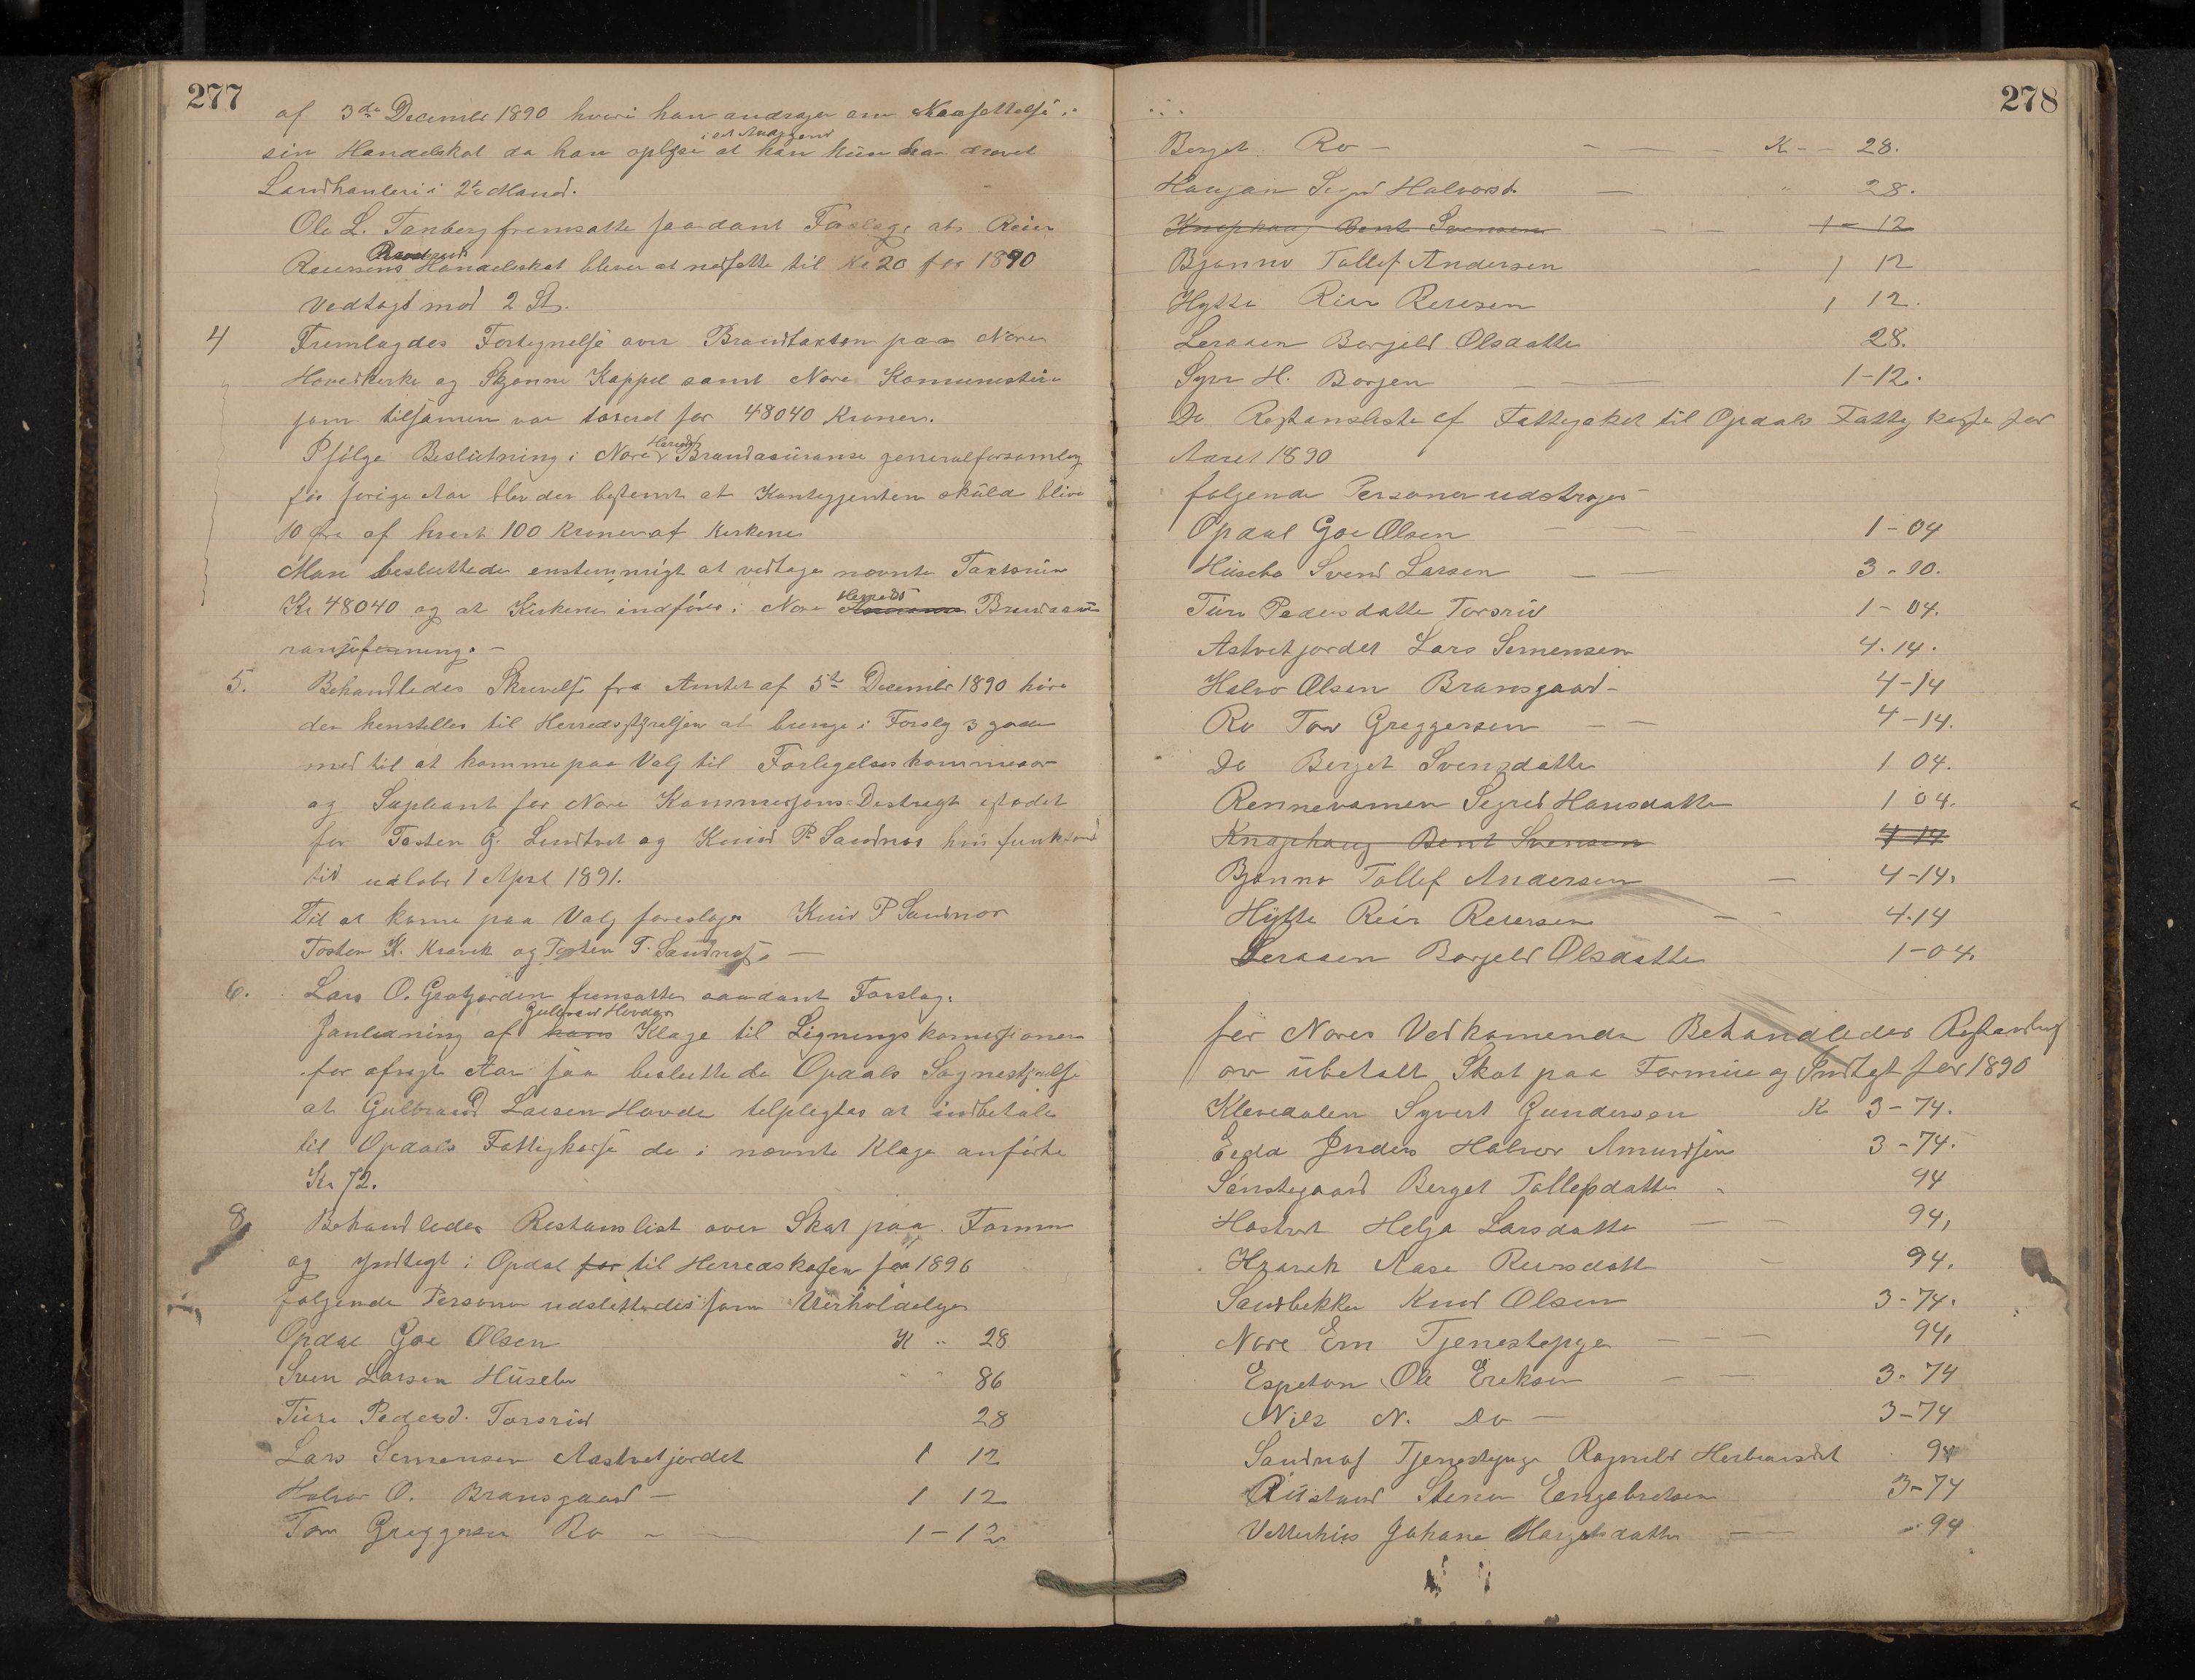 277
af 3de December 1890 hvori han andrager om Nedsættelse i
sin Handelskat da han oplyse i et Andragende at han kun har drevet
Landhanleri i 2 Maned.
Ole L. Tanberg fremsatte saadant Forslag, at Reier
Reiersens Handelskat bliver at nedsætte til Kr 20 for 1890
Vedtaget mod 2 St.
4 Fremlagdes Fortegnelse over Brandtaxten paa Nore
Hovedkirke og Skjønne Kappel samt Nore Komunestue
som tilsamen var taxeret for 48040 Kroner.
Ifølge Beslutning i Nore Herreds Brandasuranse generalforsamlig
for forige Aar blev der bestemt at Kontigjenten skuld blive
10 Øre af hvert 100 Kroner af Kirkene
Man besluttede enstemmigt at vedtage nævnte Taxtsum
Kr 48040 og at Kirkene indføres i Nore Herreds Brandasu
ranseforening. -
5. Behandledes Skrivelse fra Amtet af 5te December 1890 hvor
der henstilles til Herredsstyrelsen at bringe i Forslag 3 gode
mæd til at komme paa Valg til Forligelseskommisær
og Supleant for Nore Kommissjons-Destrigt istedet
for Tosten G. Lindtvet og Knud P. Sandnes hvis funktions
tid udløbe 1 April 1891.
Til at kome paa Valg foreslages Knud P Sandnor
Tosten K. Kravik og Tosten T. Sandnes. -
6. Lars O. Grotjorden fremsatte saadant Forslag.
Janledning af hans Gulbrand Hovdes Klage til Ligningskomisionen
for afvigte Aar saa besluttede Opdals Sognestyrelse
at Gulbrand Larsen Hovde tilpligtes at indbetale
til Opdals Fattigkasse de i nævnte Klage anførte
Kr 72.
8. Behandledes Restansliste over Skat paa Formue
og Indtegt i Opdal for til Herredskassen for 1890
følgende Personer udslettedes som Uerholdelige
Opdal Goe Olsen K " 28
Sven Larsen Huseby " " 86
Ture Pedersd. Torsrud 28
Lars Semensen Aastvetjordet 1 12
Halvor O. Bransgaard - 1 12
Tov Greggersen Ro - 1-12
278
Berget Ro - K - - 28.
Haugan Sigrid Halvorsd. - " 28.
Knaphaug Bent Svensen - - 1-12
Bjønno Tollef Andersen - 1 12
Hytte Reier Reiersen 1 12.
Leraaen Borgild Olsdatter 28.
Syver H. Borgen - - 1-12.
Do Restansliste af Fattigskat til Opdals Fattigkasse for
Aaret 1890
følgende Personer udstroges
Opdal Goe Olsen 1-04
Huseba Svend Larsen 3-10.
Turi Pedersdatte Torsrud 1-04.
Astvetjordet Lars Semensen 4.14.
Halvor Olsen Bransgaard - 4-14
Ro Tov Greggersen - - 4-14.
Do Berget Svensdatter 1 04.
Rennevamen Segrid Hansdatter 1 04.
Knaphaug Bent Svensen 4 14
Bjønno Tollef Andersen - 4-14.
Hytte Reier Reiersen - - 4.14
Leraaen Borgild Olsdatter 1-04.
for Nores Vedkomende Behandledes Restanslist
over ubetalt Skat paa Formue og Indtegt for 1890
Klevedalen Syvert Gundersen K 3-74.
Eegda Inders Halvor Amundsen 3-74.
Sønstegaard Berget Tollefsdatter - 94
Hastvet Helga Larsdatter - - 94,
Kravik Aase Reiersdatt - 94.
Sandbekke Knud Olsen 3-74.
Nore Em Tjenestepige - - - 94,
Espeton Ole Eriksen - - 3-74
Nils N. Do - 3-74
Sandnes Tjenestepige Ragnild Herbrandsdt 94
Rustand Stener Engebretsen 3-74
Vetterhus Johane Margetsdatter - - 94